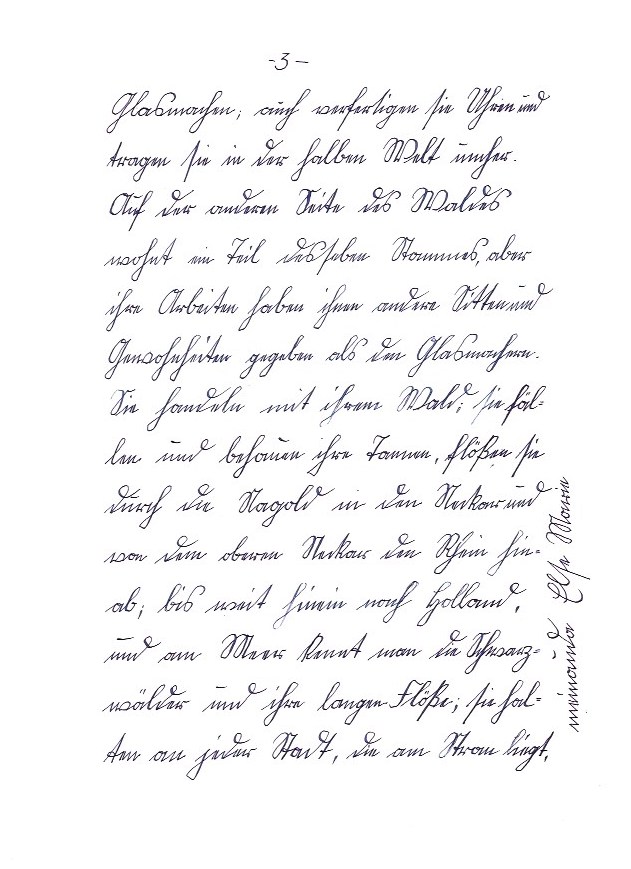 -3-
Glasmachen; auch verfertigen sie Uhren und
tragen sie in der halben Welt umher.
Auf der anderen Seite des Waldes
wohnt ein Teil desselben Stammes, aber
ihre Arbeiten haben ihnen andere Sitten und
Gewohnheiten gegeben als den Glasmachern.
Sie handeln mit ihrem Wald; sie fäl-
len und behauen ihre Tannen, flößen sie
durch die Nagold in den Neckar und
von dem oberen Neckar den Rhein hin-
ab; bis weit hinein nach Holland,
und am Meer kennt man die Schwarz-
wälder und ihre langen Flöße; sie hal-
ten an jeder Stadt, die am Strom liegt,
Else Marie